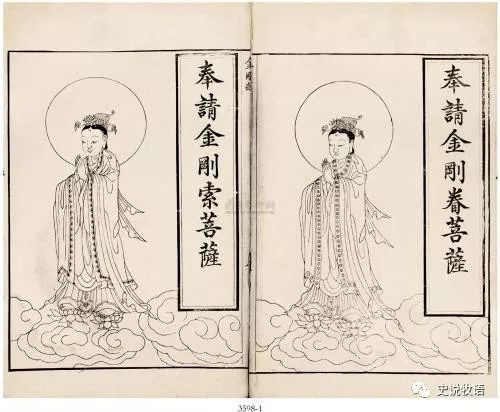 奉請金剛眷菩薩
奉請金剛索菩薩
金剛
3598-1
史说牧语